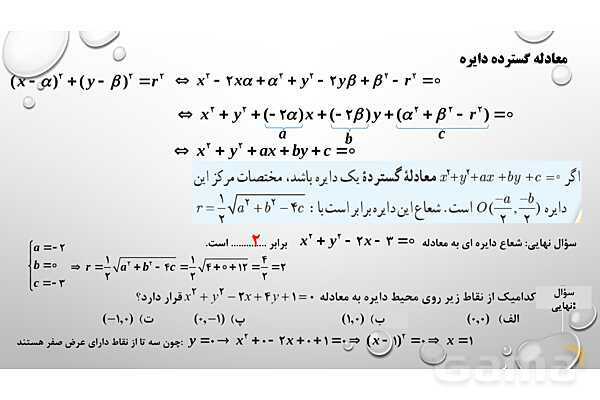 معادله گسترده دایره
(x − α)^۲ + (y − β)^۲ = r^۲ ⇔ x^۲ − ۲xα + α^۲ + y^۲ − ۲yβ + β^۲ − r^۲ = ۰
⇔ x^۲ + y^۲ + (−۲α)x + (−۲β)y + (α^۲ + β^۲ − r^۲) = ۰
a b c
⇔ x^۲ + y^۲ + ax + by + c = ۰
اگر x^۲+y^۲+ax+by+c=۰ معادلهٔ گستردهٔ یک دایره باشد، مختصات مرکز این
دایره O(−a/۲, −b/۲) است. شعاع این دایره برابر است با: r = ۱/۲ √(a^۲ + b^۲ − ۴c)
سؤال نهایی: شعاع دایره ای به معادله x^۲ + y^۲ − ۲x − ۳ = ۰ برابر ......۲...... است.
{a = −۲
b = ۰ ⇒ r = ۱/۲ √(a^۲ + b^۲ − ۴c) = ۱/۲ √(۴ + ۰ + ۱۲) = ۴/۲ = ۲
c = −۳
سؤال نهایی: کدامیک از نقاط زیر روی محیط دایره به معادله x^۲ + y^۲ − ۲x + ۴y + ۱ = ۰ قرار دارد؟
الف) (۰,۰) ب) (۱,۰) پ) (۰,−۱) ت) (−۱,۰)
چون سه تا از نقاط دارای عرض صفر هستند: y = ۰ → x^۲ + ۰ − ۲x + ۰ + ۱ = ۰ ⇒ (x − ۱)^۲ = ۰ ⇒ x = ۱
Gama